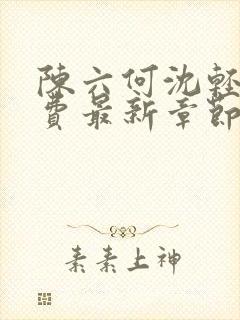 陳六何沈輕
費最新章節
素素上神